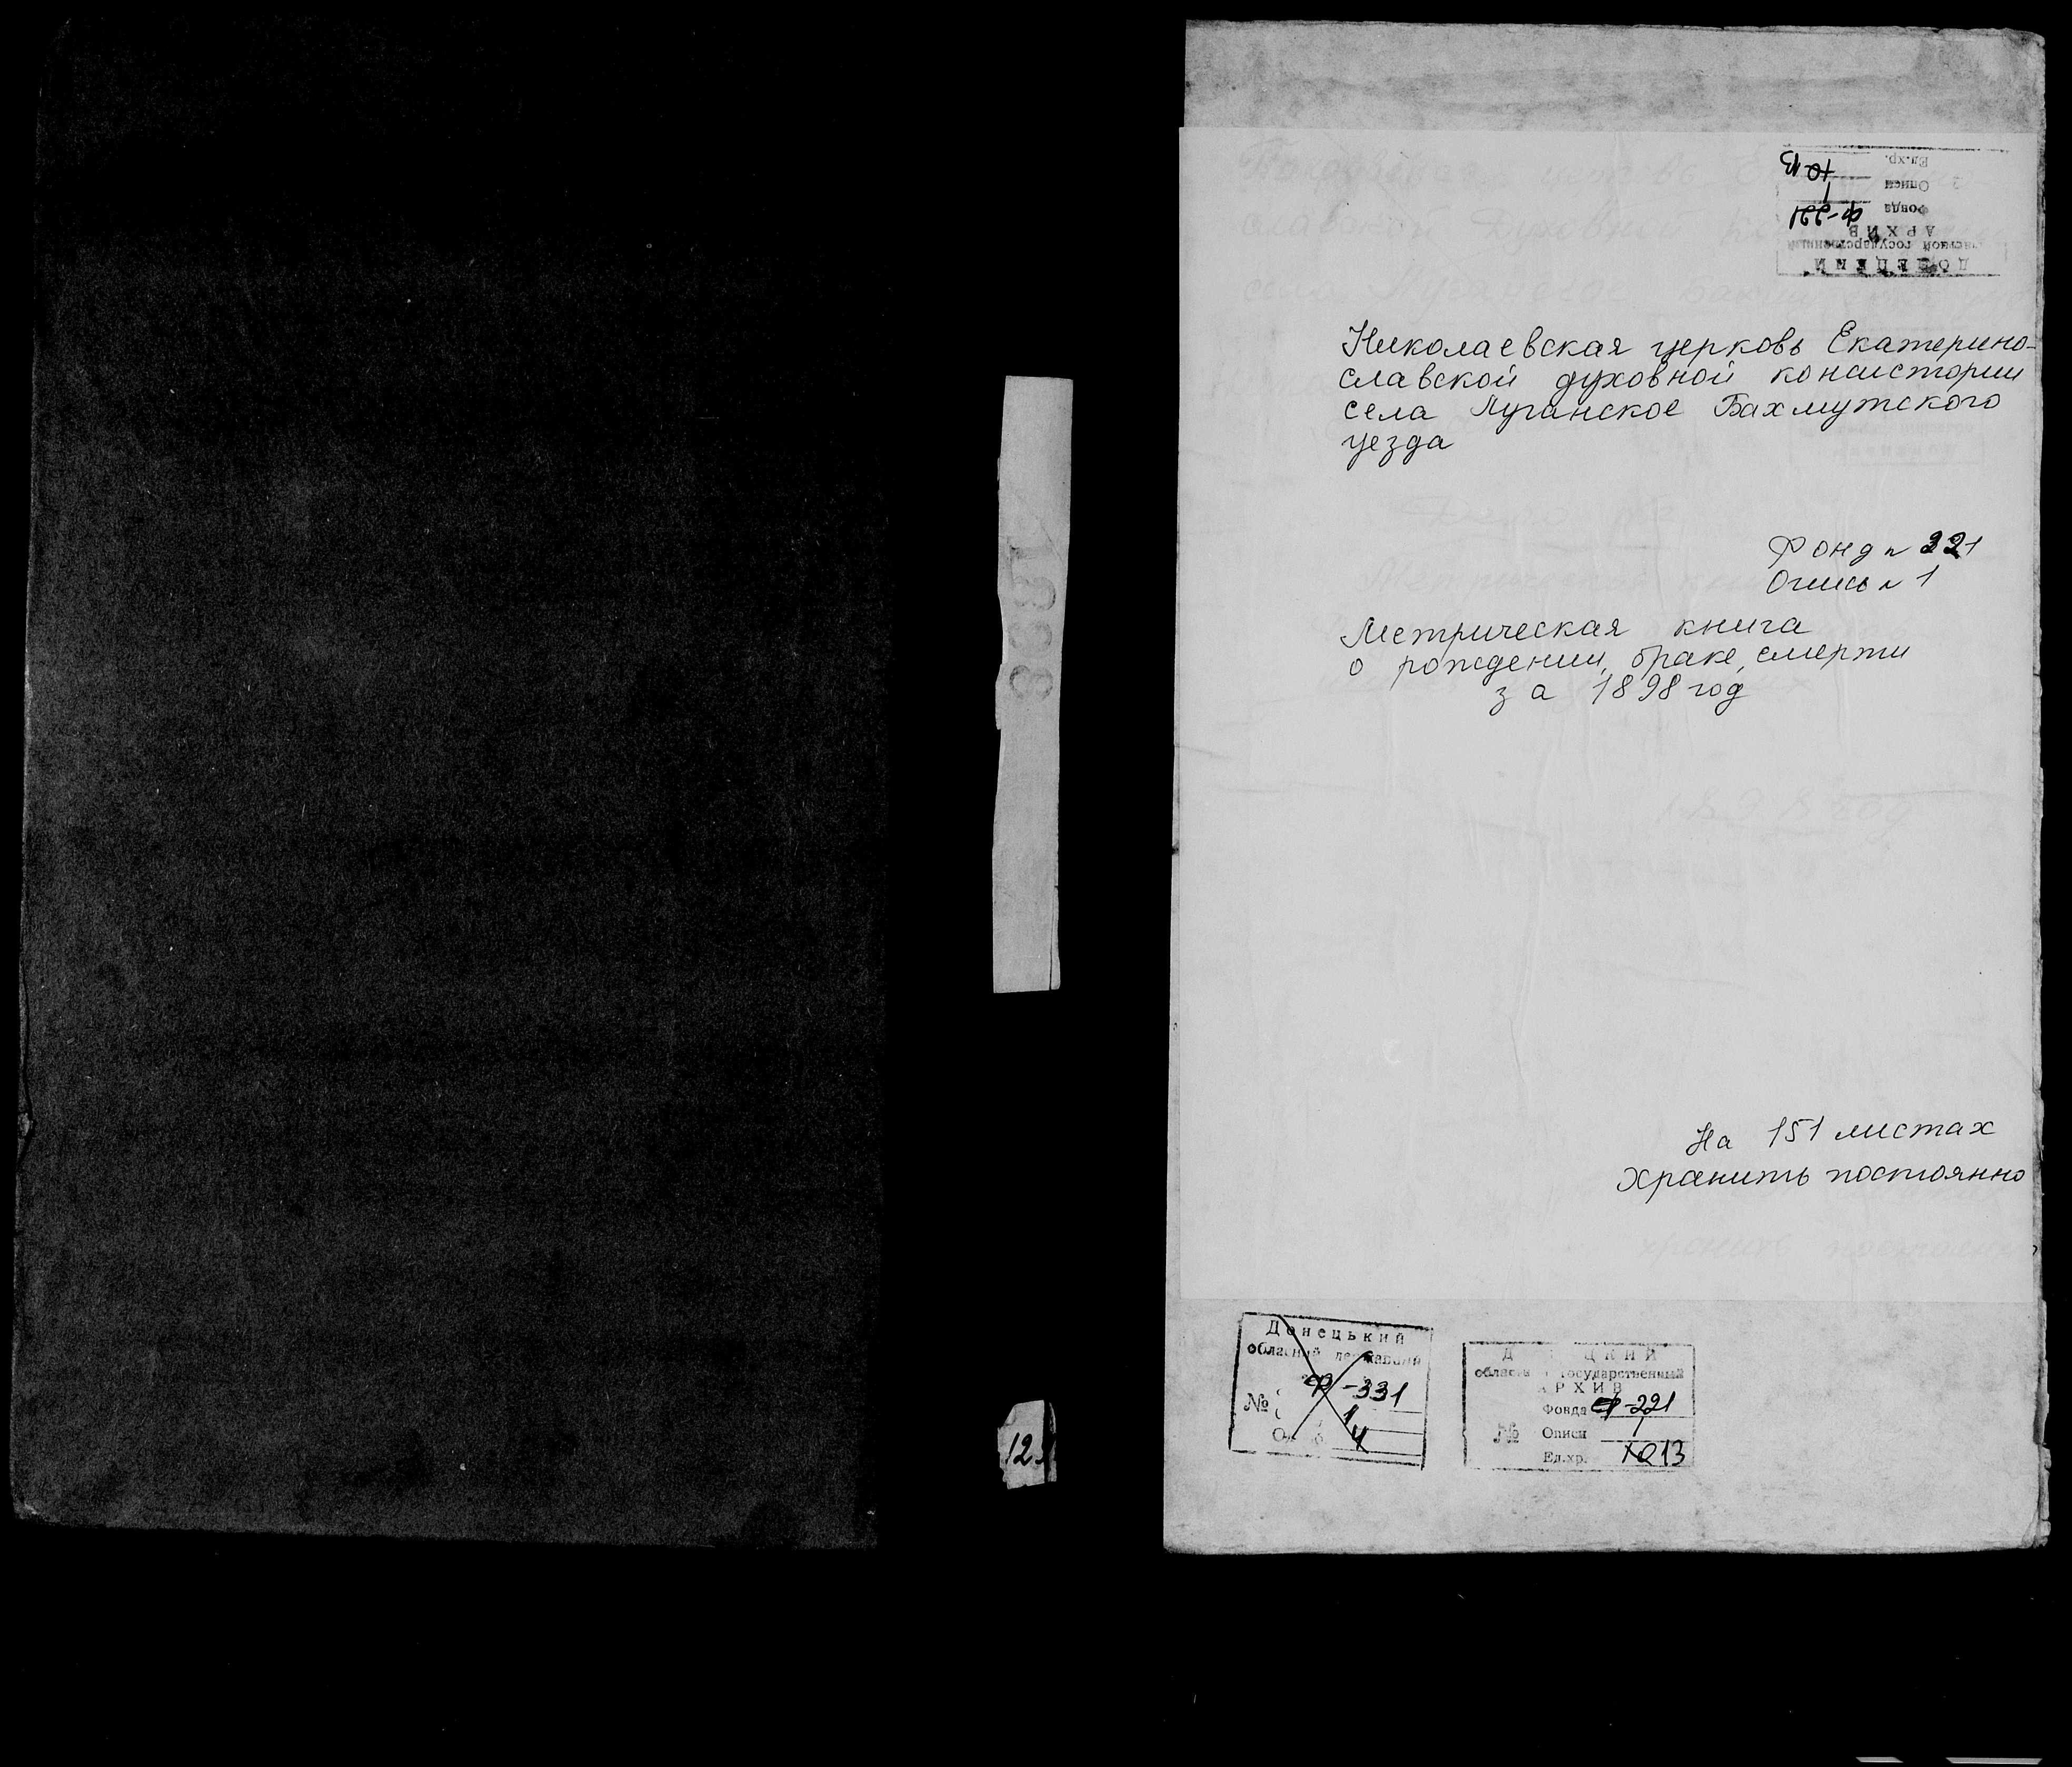 1898
12
Ед.хр. 13
Описи 1
Фонда Ф-221
АРХИВ
государственный
ДОНЕЦКИЙ
Николаевская церковь Екатерино-
славской духовной консистории
села Луганское Бахмутского
уезда
Фонд № 221
Опись № 1
Метрическая книга
о рождении, браке, смерти
за 1898 год
На 151 листах
Хранить постоянно
Донецький
обласний державний
Ф-331
№ 1
4
государственный
АРХИВ
Фонда Ф-221
№ Описи 1
Ед.хр. 13